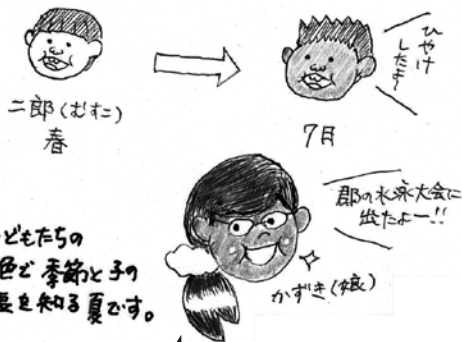 二郎(むすこ)
春
7月
ひやけ
したよー
郡の水泳大会に
出たよー!!
かずき(娘)
どもたちの
色で季節と子の
長を知る夏です。